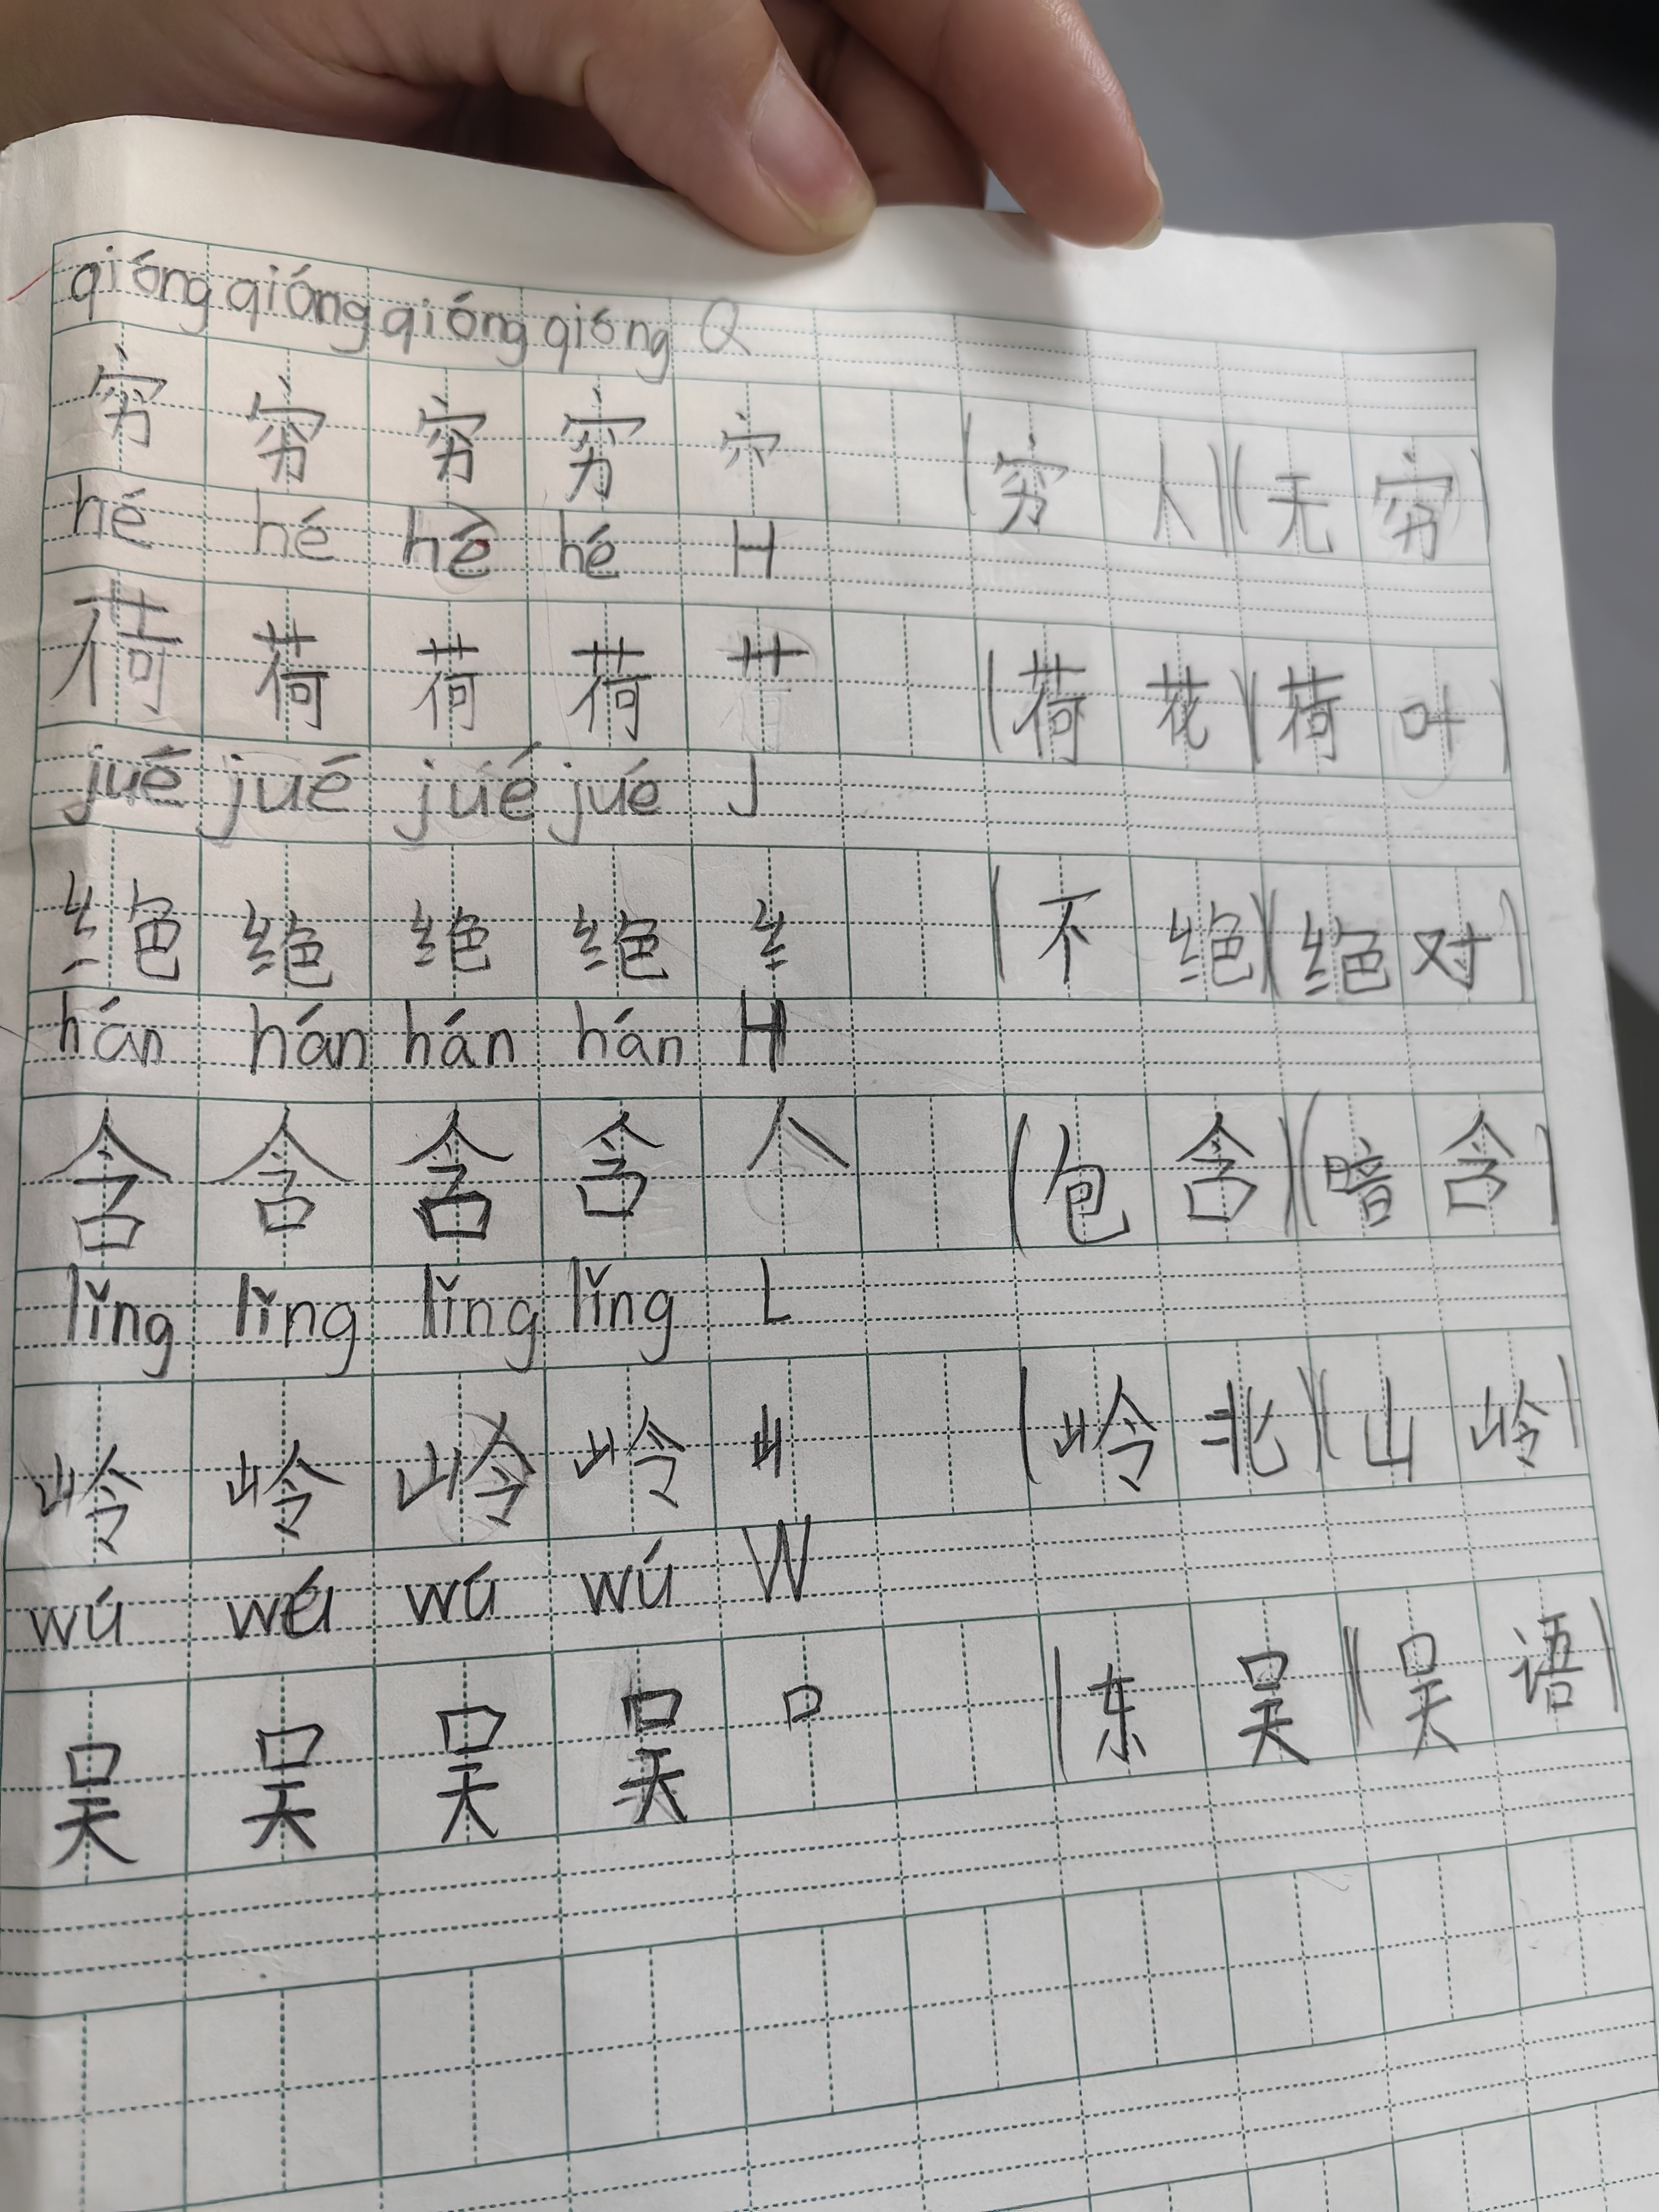 qióng qióng qióng qióng Q
穷 穷 穷 穷 穴 (穷人)(无穷)
hé hé hé hé H
荷 荷 荷 荷 艹 (荷花)(荷叶)
jué jué jué jué J
绝 绝 绝 绝 纟 (不绝)(绝对)
hán hán hán hán H
含 含 含 含 人 (包含)(暗含)
lǐng lǐng lǐng lǐng L
岭 岭 岭 岭 山 (岭北)(山岭)
wú wú wú wú W
吴 吴 吴 吴 口 (东吴)(吴语)